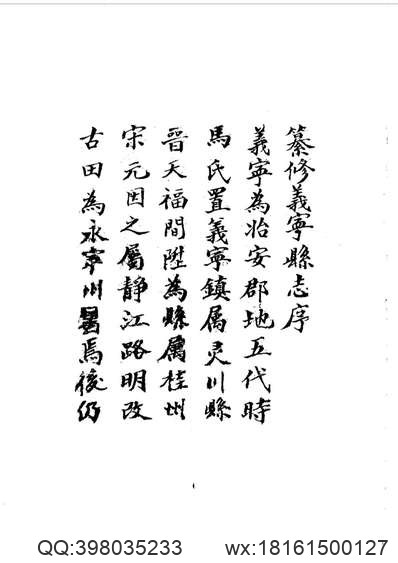 纂修義寧縣志序
義寧為治安郡地五代時
馬氏置義寧鎮属灵川縣
晉天福間陞為縣屬桂州
宋元因之屬靜江路明改
古田為永寧州焉後仍
QQ:398035233 wx:18161500127